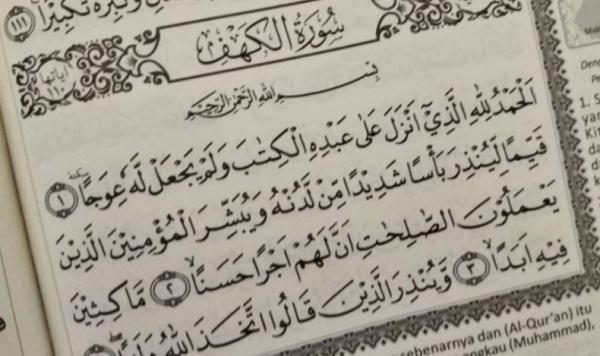 وَكَبِّرْهُ تَكْبِيْرًا ١١١
سُوْرَةُ الْكَهْفِ
اٰيَاتُهَا ١١٠
بِسْمِ اللّٰهِ الرَّحْمٰنِ الرَّحِيْمِ
اَلْحَمْدُ لِلّٰهِ الَّذِيْٓ اَنْزَلَ عَلٰى عَبْدِهِ الْكِتٰبَ وَلَمْ يَجْعَلْ لَّهٗ عِوَجًا ۜ ١
قَيِّمًا لِّيُنْذِرَ بَأْسًا شَدِيْدًا مِّنْ لَّدُنْهُ وَيُبَشِّرَ الْمُؤْمِنِيْنَ الَّذِيْنَ
يَعْمَلُوْنَ الصّٰلِحٰتِ اَنَّ لَهُمْ اَجْرًا حَسَنًاۙ ٢ مَّاكِثِيْنَ
فِيْهِ اَبَدًاۙ ٣ وَّيُنْذِرَ الَّذِيْنَ قَالُوا اتَّخَذَ اللّٰهُ وَلَدًا
1. S
sebenarnya dan (Al-Qur'an) itu
(Muhammad),